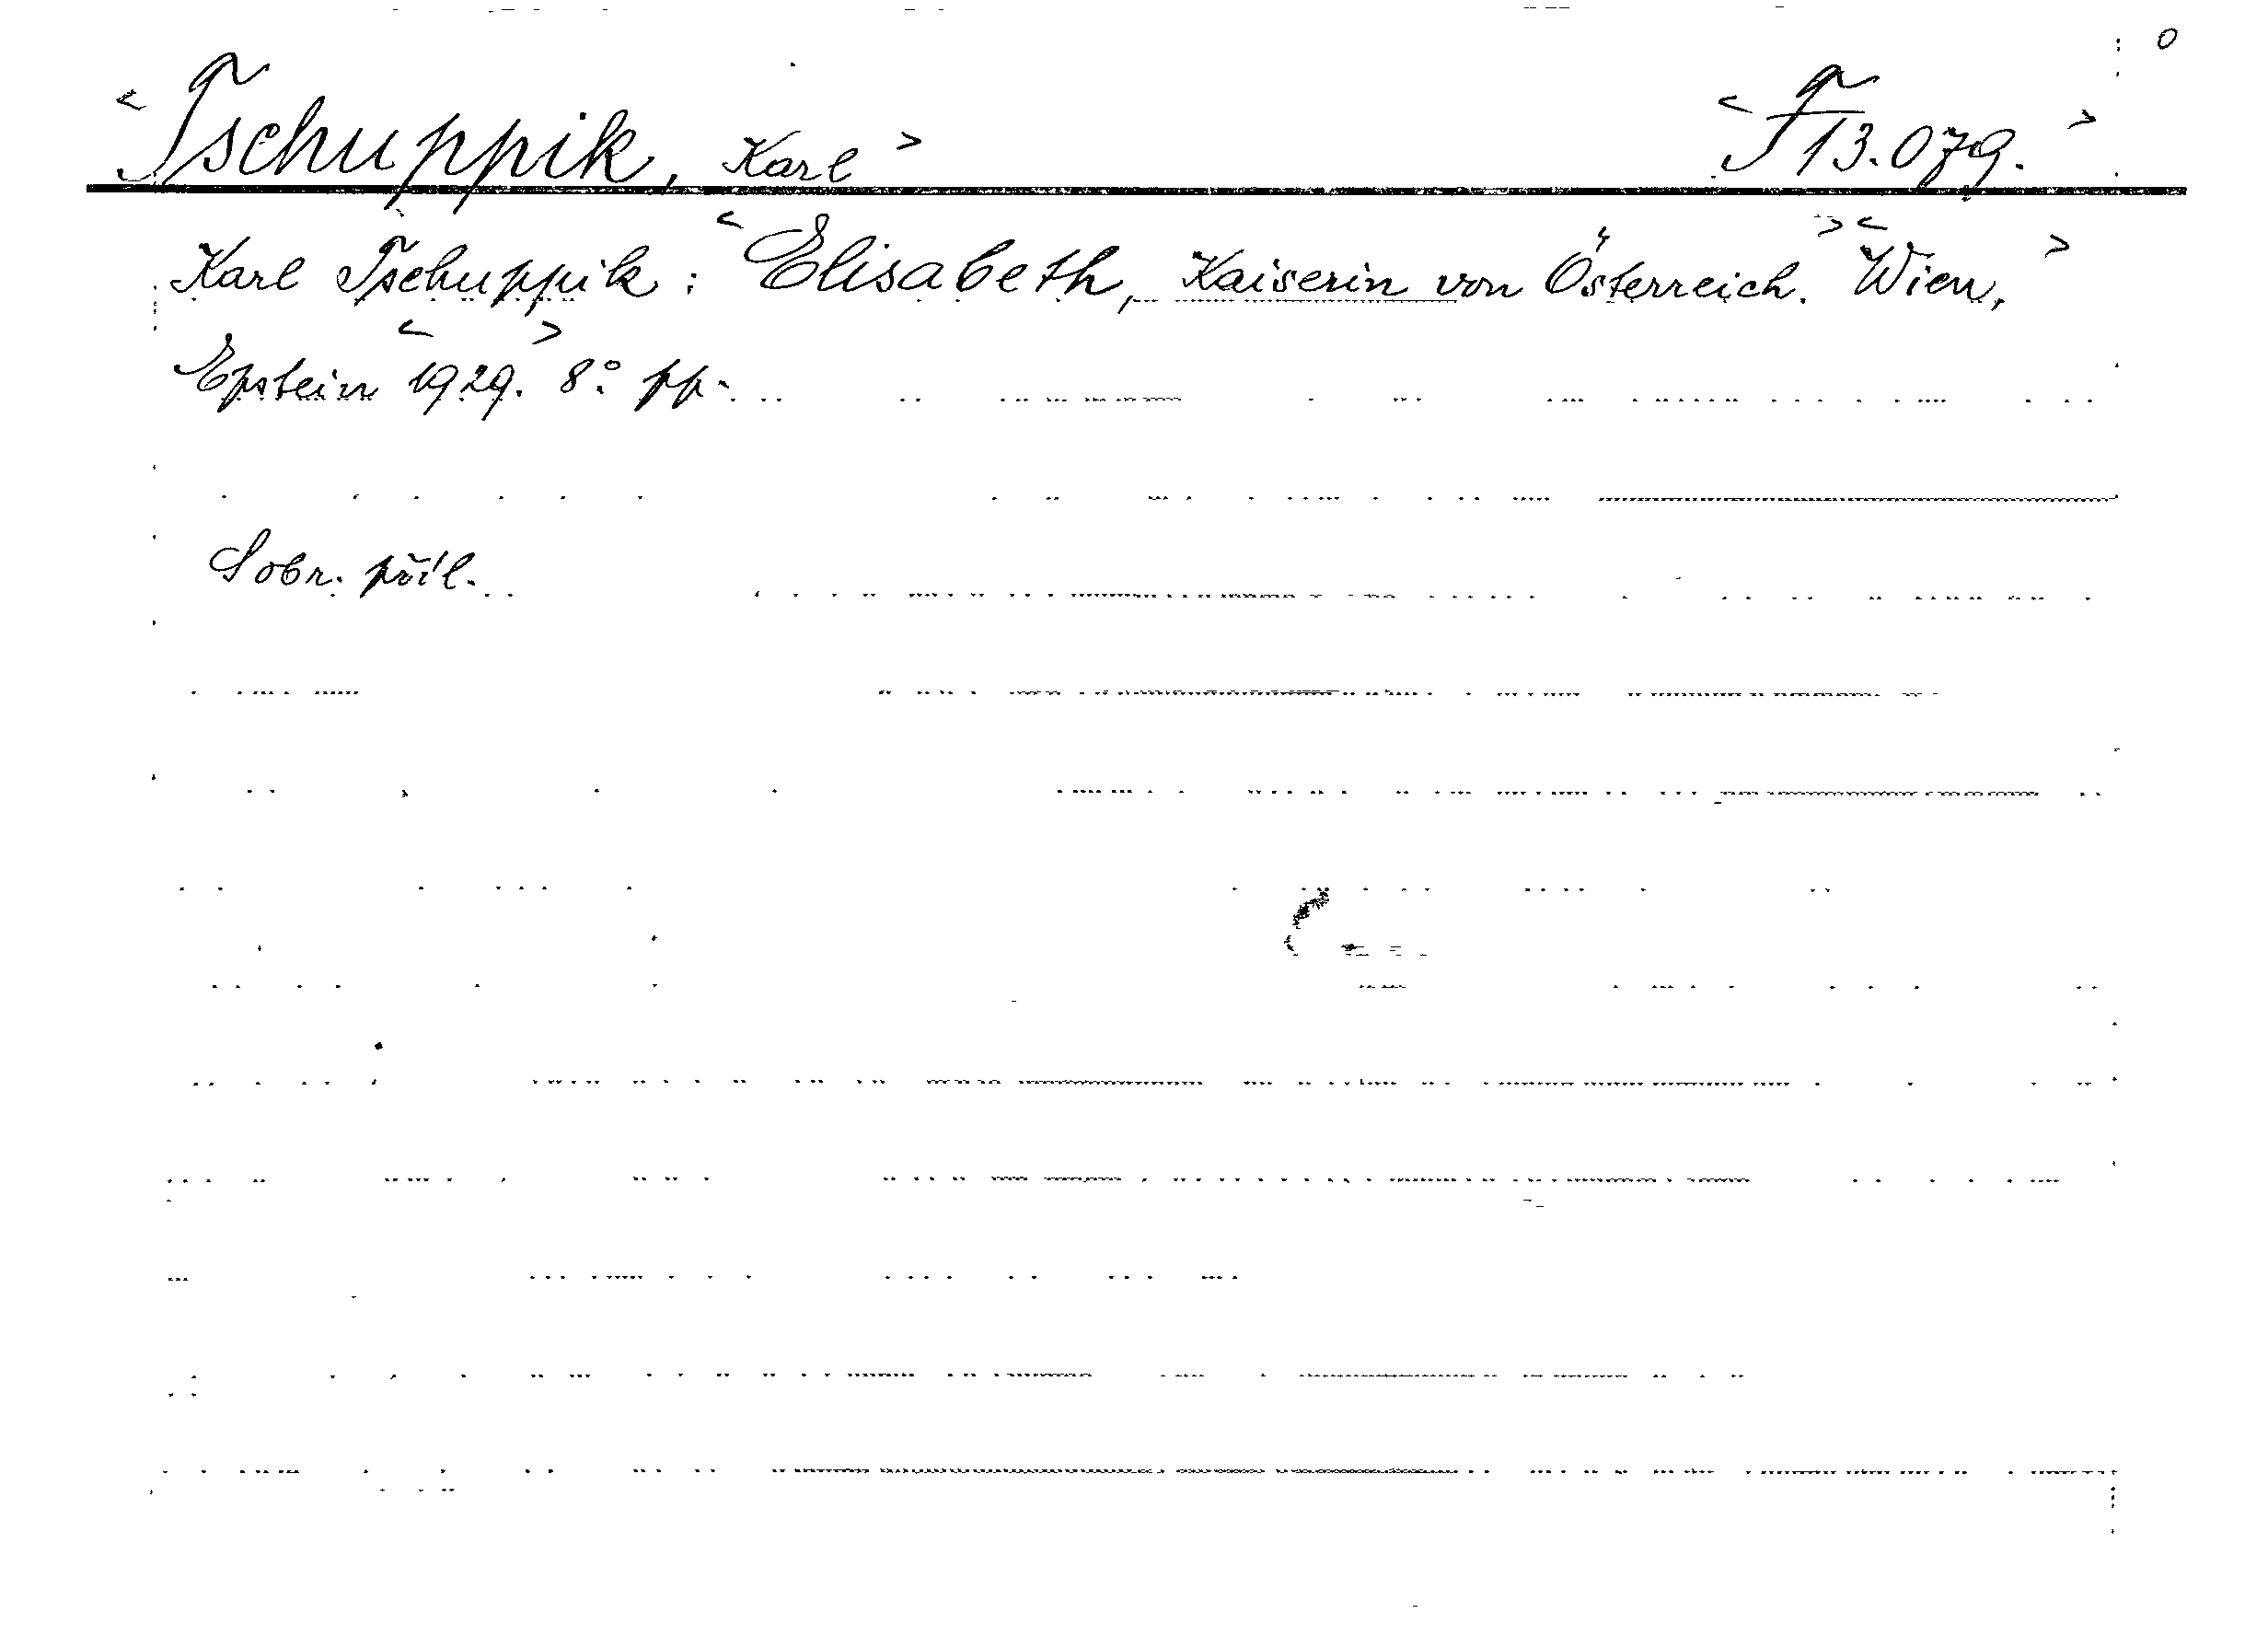 <Tschuppik, Karl> <F 13.079.> o
Karl Tschuppik: <Elisabeth, Kaiserin von Österreich.> <Wien,>
Epstein <1929.> 8:° pp.
Sobr. příl.